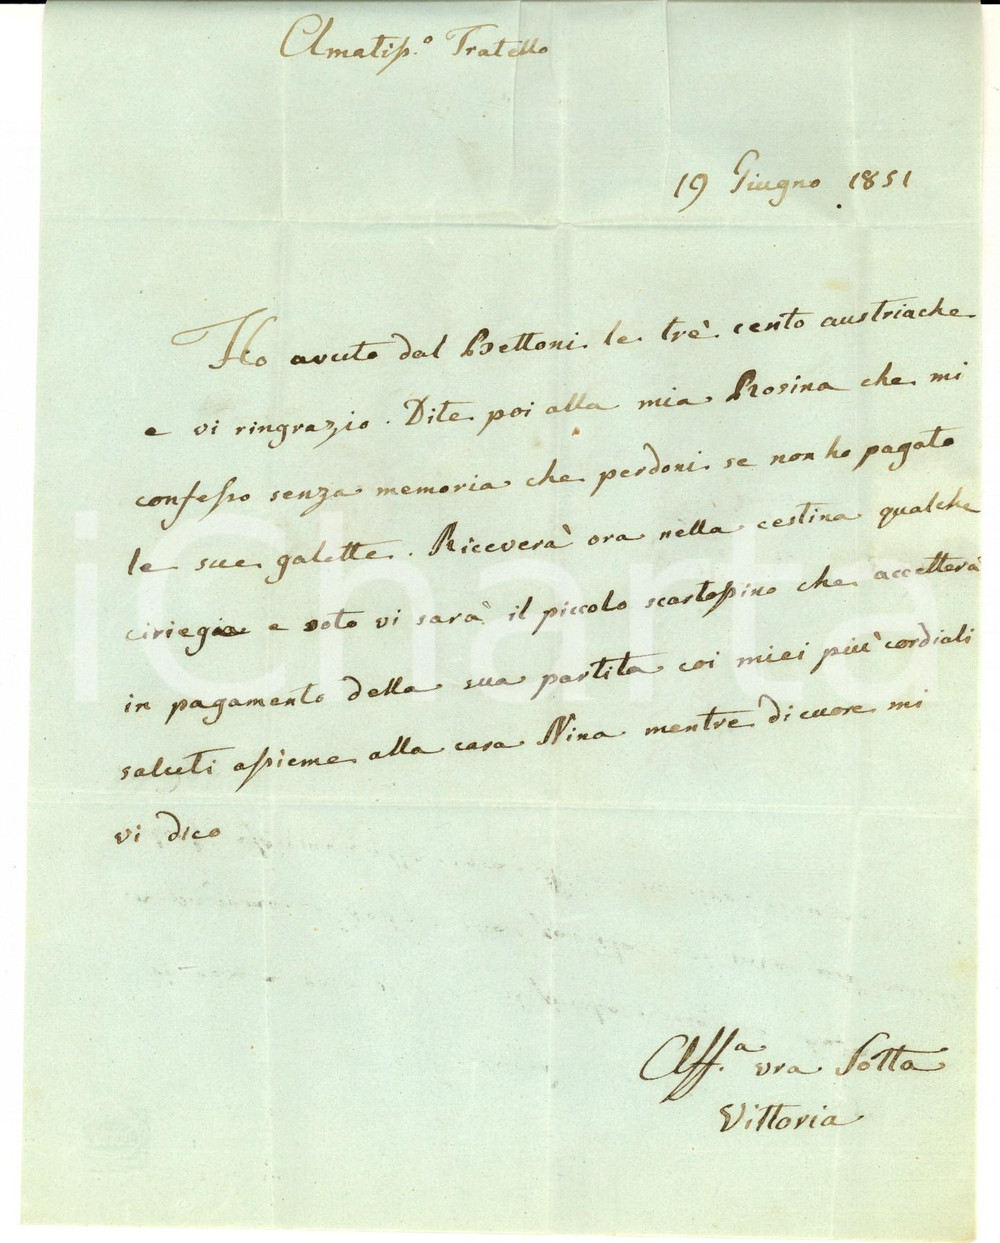 Amatiss.º Fratello
19 Giugno 1851
Ho avuto dal Bettoni le trè cento austriache
e vi ringrazio. Dite poi alla mia Rosina che mi
confesso senza memoria che perdoni se non ho pagato
le sue galette. Riceverà ora nella cestina qualche
ciriegie e soto vi sarà il piccolo scartossino che accetterà
in pagamento della sua partita coi miei più cordiali
saluti assieme alla cara Nina mentre di cuore mi
vi dico
Aff.ª vra Sotta
Vittoria
iCharta